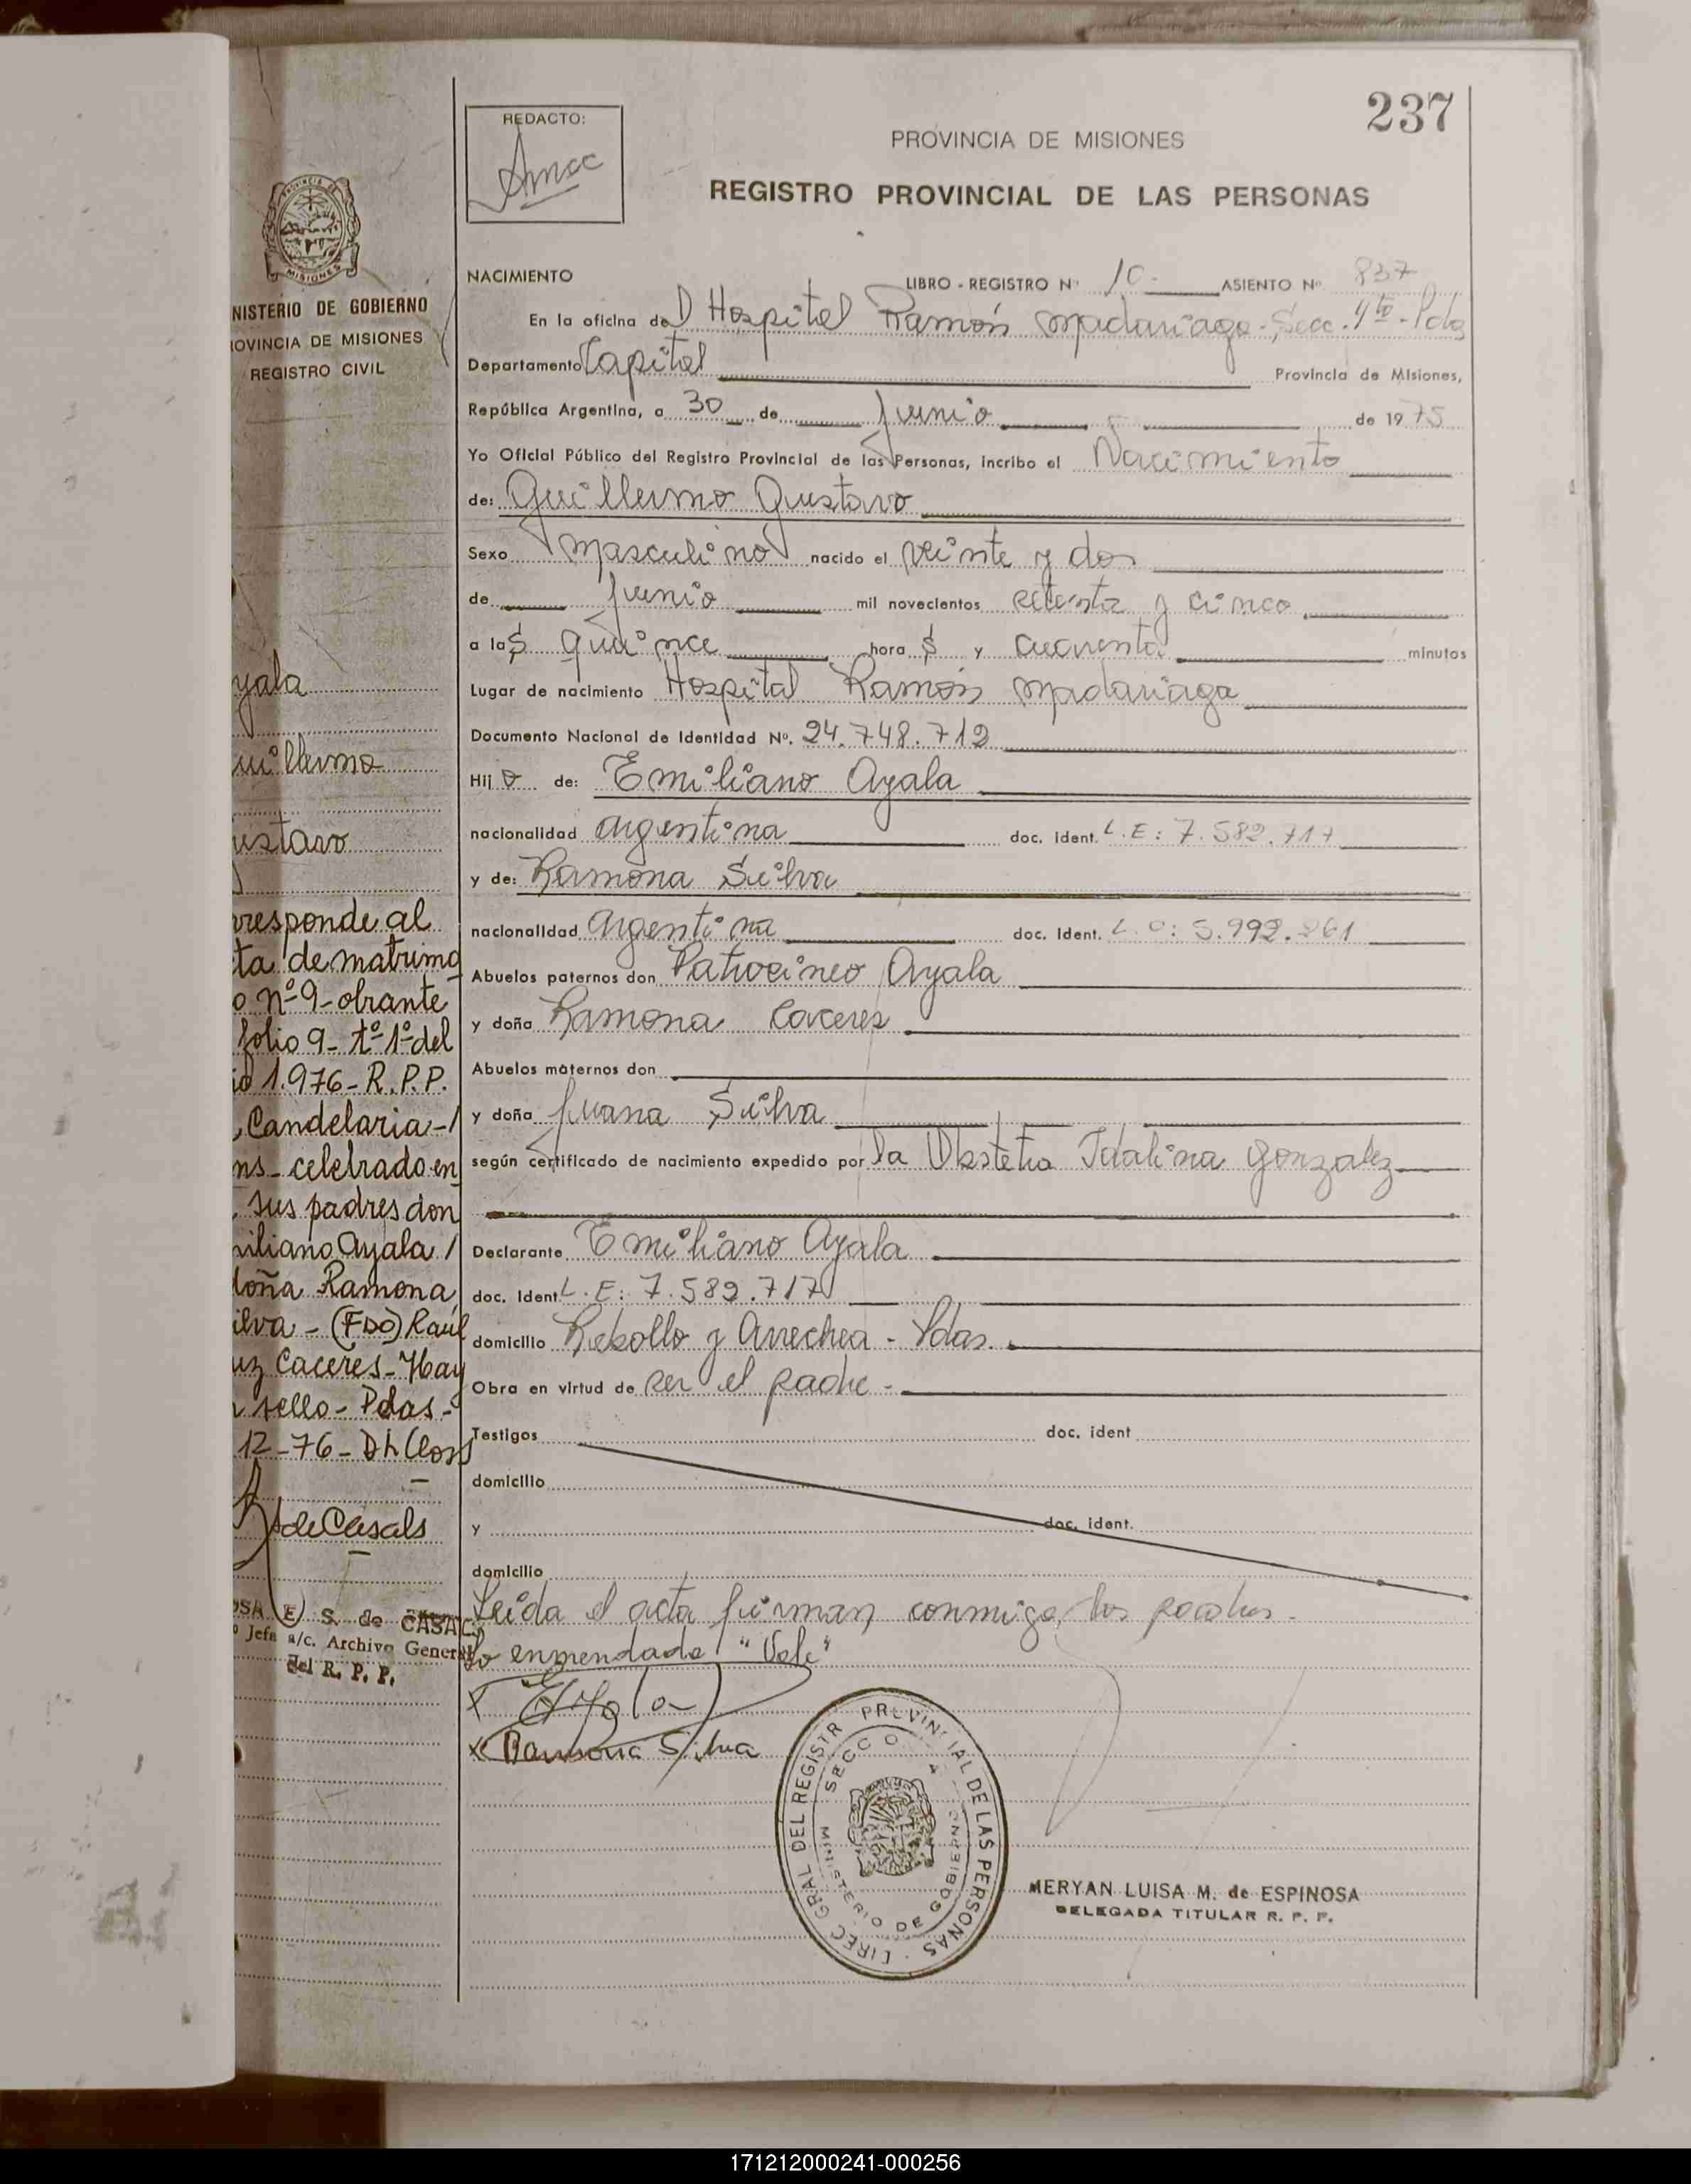 237
REDACTO:
PROVINCIA DE MISIONES
REGISTRO PROVINCIAL DE LAS PERSONAS
MISIONES
NISTERIO DE GOBIERNO
OVINCIA DE MISIONES
REGISTRO CIVIL
yala
uillermo
ustavo
rresponde al
ta de matrimo
o nº 9 - obrante
folio 9 - tº 1º del
1.976 - R. P. P.
Candelaria - /
ns - celebrado en
sus padres don
iliano Ayala /
doña Ramona
ilva - (FDO) Raúl
uz Caceres - Hay
sello - Pdas -
12 - 76 - Dh Closs
de Casals
OSA E S. de CASALS
Jefe a/c. Archivo General
del R. P. P.
NACIMIENTO LIBRO - REGISTRO Nº 10 - ASIENTO Nº 837
En la oficina del Hospital Ramón Madariaga - Secc. 4ta - Pdas
Departamento Capital Provincia de Misiones,
República Argentina, a 30 de Junio de 1975
Yo Oficial Público del Registro Provincial de las Personas, incribo el Nacimiento
de: Guillermo Gustavo
Sexo masculino nacido el veinte y dos
de Junio mil novecientos setenta y cinco
a las quince horas y cuarenta minutos
Lugar de nacimiento Hospital Ramón Madariaga
Documento Nacional de Identidad Nº. 24.748.712
Hijo de: Emiliano Ayala
nacionalidad argentina doc. ident. L.E: 7.582.717
y de: Ramona Silva
nacionalidad argentina doc. ident. L.C: 5.992.261
Abuelos paternos don Patrocineo Ayala
y doña Ramona Caceres
Abuelos maternos don
y doña Juana Silva
según certificado de nacimiento expedido por la Obstetra Idalina Gonzalez
Declarante Emiliano Ayala
doc. ident L.E: 7.582.717
domicilio Rebollo y Arrechea - Pdas.
Obra en virtud de ser el padre -
Testigos doc. ident
domicilio
y doc. ident.
domicilio
Leida el acta firman conmigo los padres -
Lo enmendado "Vale"
x EAyala
x Ramona Silva
DIREC GRAL DEL REGISTR PROVINCIAL DE LAS PERSONAS
SECC 4
MINISTERIO DE GOBIERNO
MERYAN LUISA M. de ESPINOSA
DELEGADA TITULAR R. P. P.
171212000241-000256